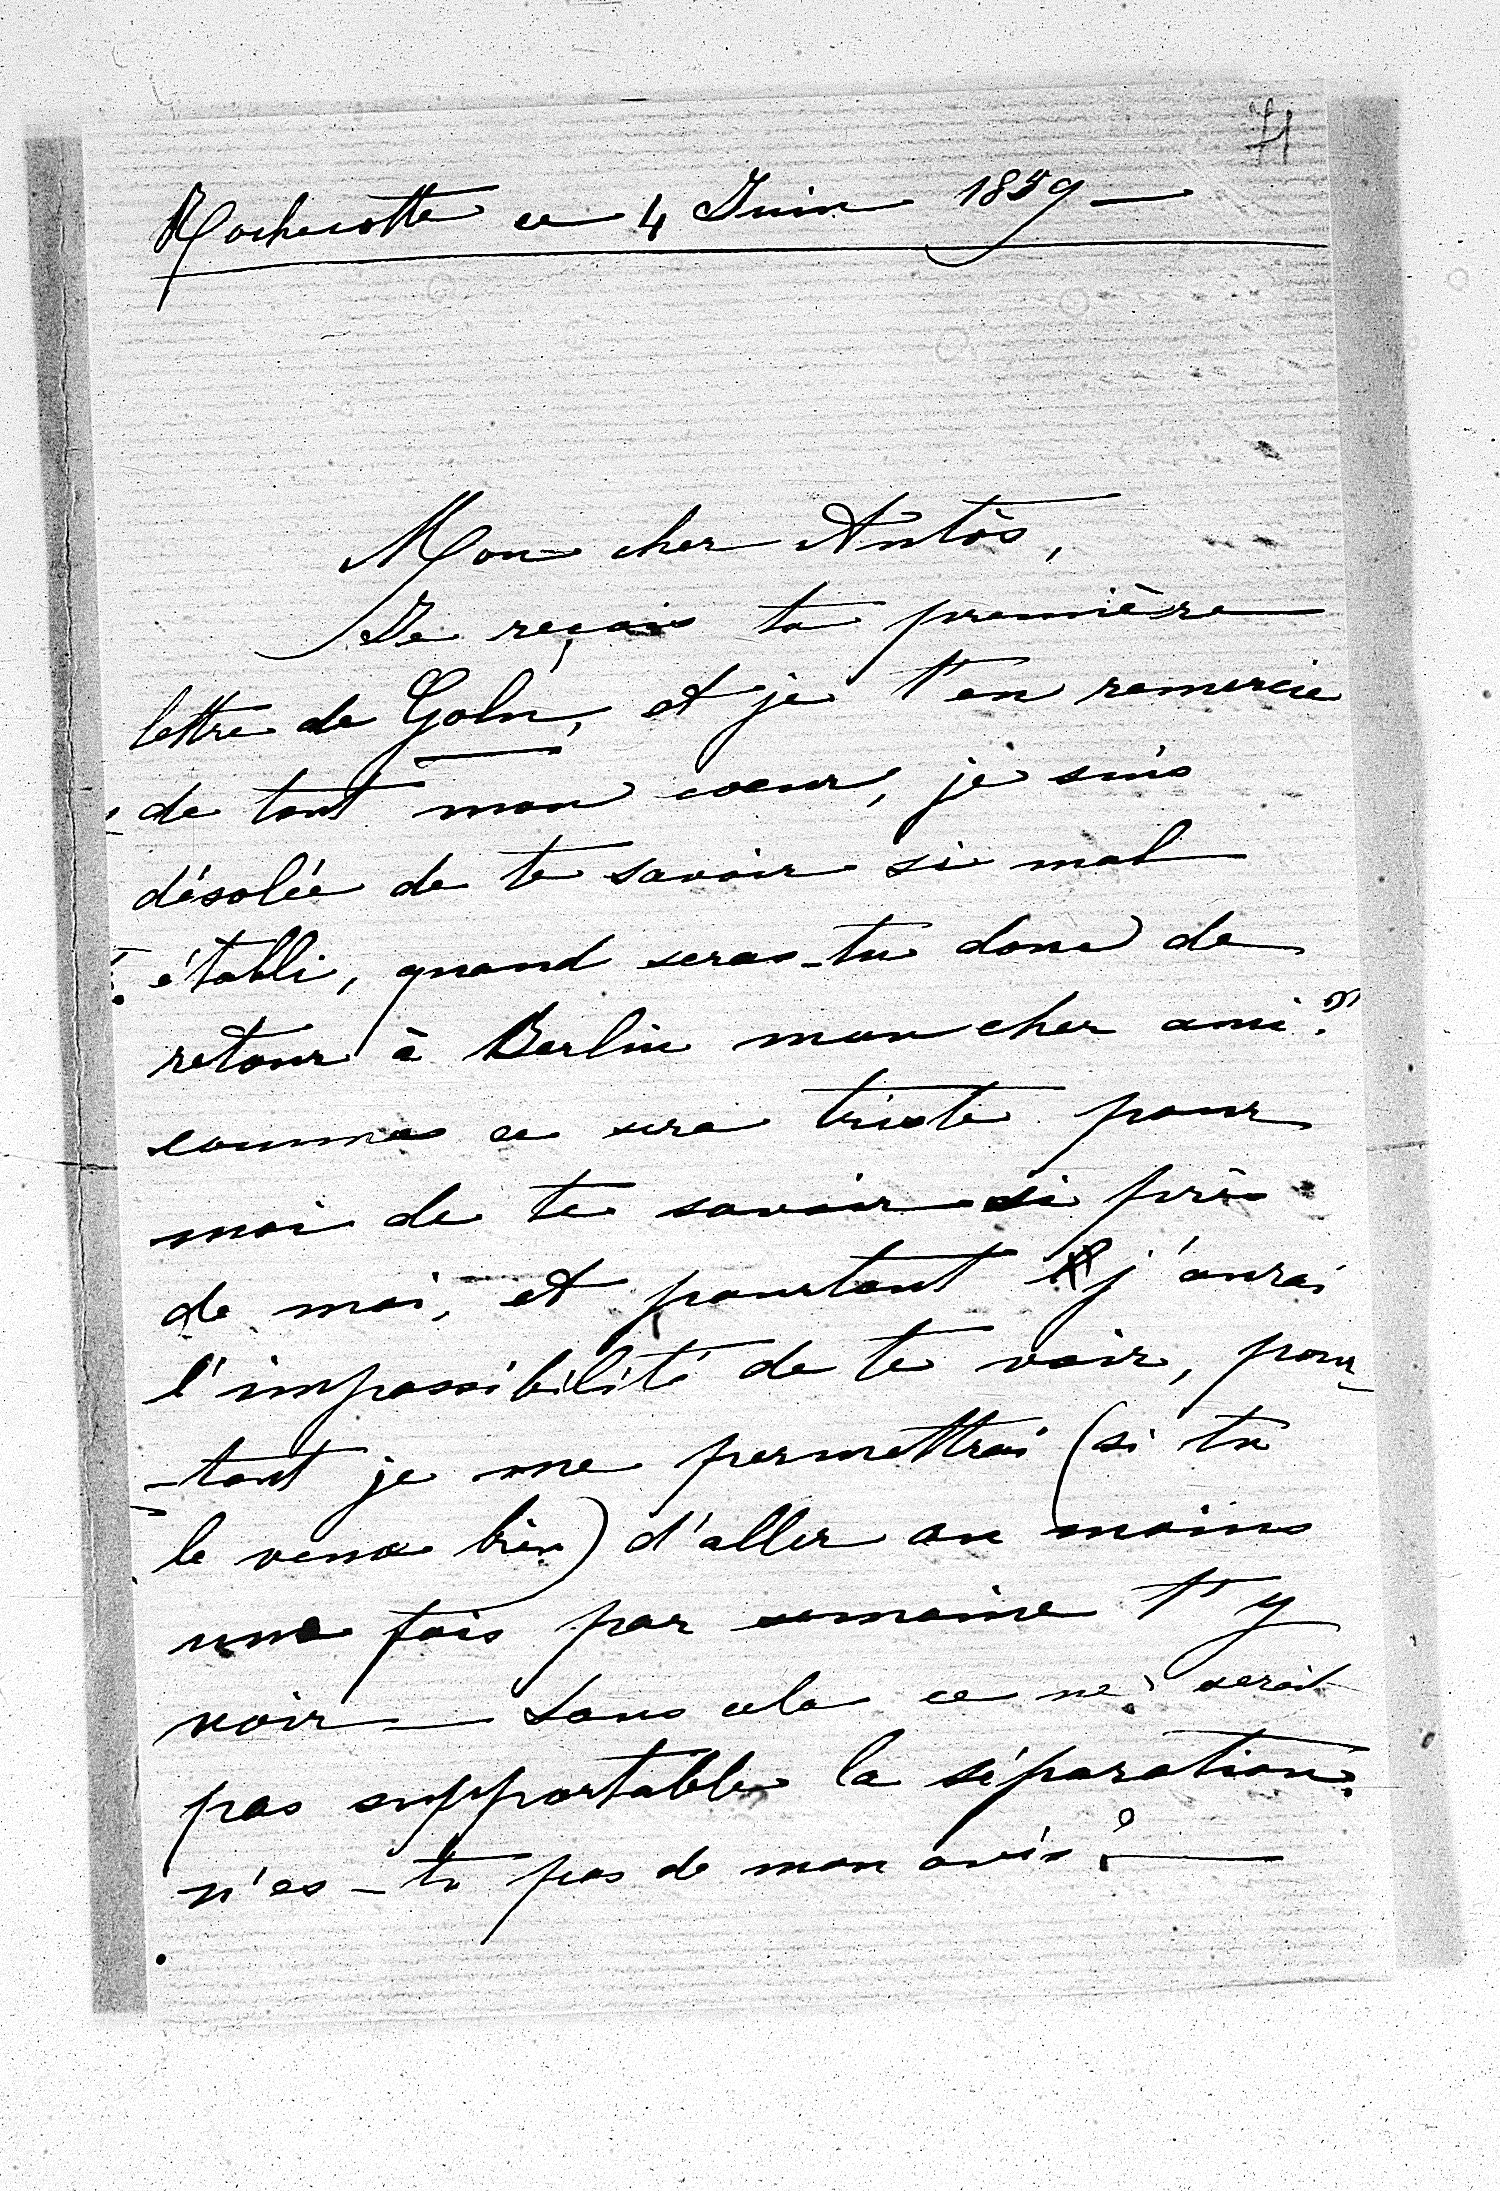 71
Rochecotte ce 4 Juin 1859 —
Mon cher Antôs,
Je reçois ta première
lettre de Goln, et je t'en remercie
de tout mon coeur, je suis
désolée de te savoir si mal
établi, quand seras-tu donc de
retour à Berlin mon cher ami?
comme ce sera triste pour
moi de te savoir si près
de moi, et pourtant j'aurai
l'impossibilité de te voir, pour-
-tant je me permettrai (si tu
le veux bien) d'aller au moins
une fois par semaine t'y
voir — Sans cela ce ne serait
pas supportable la séparation.
n'es-tu pas de mon avis? —